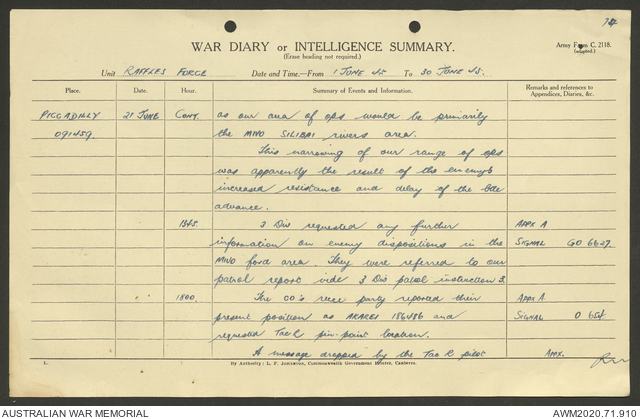 74
WAR DIARY or INTELLIGENCE SUMMARY.
(Erase heading not required.)
Army Form C. 2118.
(adapted.)
Unit RAFFLES FORCE Date and Time.—From 1 JUNE 45 To 30 JUNE 45.
Place. Date. Hour. Summary of Events and Information. Remarks and references to Appendices, Diaries, &c.
PICCADILLY 21 JUNE CONT. as our area of ops would be primarily
091459. the MIVO SILIBAI rivers area.
This narrowing of our range of ops
was apparently the result of the enemy's
increased resistance and delay of the bde
advance.
1545. 3 Div requested any further APPX A
information on enemy dispositions in the SIGNAL GO 6627.
MIVO ford area. They were referred to our
patrol report vide 3 Div patrol instruction 3.
" 1800. The CO's recce party reported their APPX A
present position as 186486 and SIGNAL O 654
requested Tac R pin-point location.
A message dropped by the Tac R pilot APPX.
1. By Authority: L. F. JOHNSTON, Commonwealth Government Printer, Canberra.
AUSTRALIAN WAR MEMORIAL AWM2020.71.910